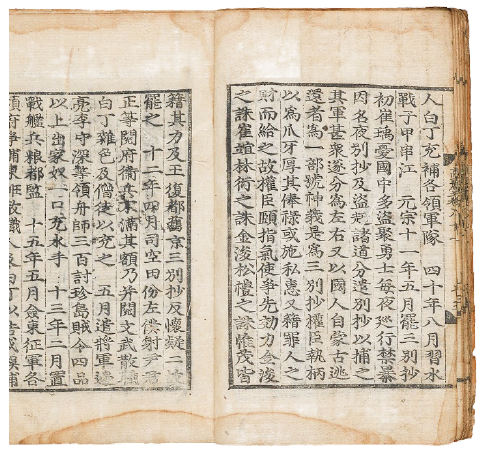 人白丁充補各領軍隊　四十年八月習水
戰于甲串江　元宗十　年五月罷三別抄
初崔瑀憂國中多盜聚勇士每夜巡行禁暴
因名夜別抄及盜起諸道分遣別抄以捕之
其軍甚衆遂分爲左右又以國人自蒙古逃
還者爲一部號神義是爲三別抄權臣執柄
以爲爪牙厚其俸祿或施私惠又籍罪人之
財而給之故權臣頤指氣使爭先効力金浚
之誅崔竩林衍之誅金浚松禮之誅惟茂皆
籍其力及王復都舊京三別抄反懷疑二故
罷之　十二年四月司空田份左僕射尹君
正等閱府衛兵不滿其額乃幷閱文武散職
白丁雜色及僧徒以充之　五月遣將軍邊
亮李守深等領舟師三百討珍島賊令四品
以上出家奴一口充水手　十三年二月置
戰艦兵粮都監　十五年五月僉東征軍各